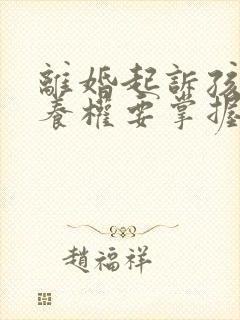 離婚起訴孩
養權要掌握
趙福祥